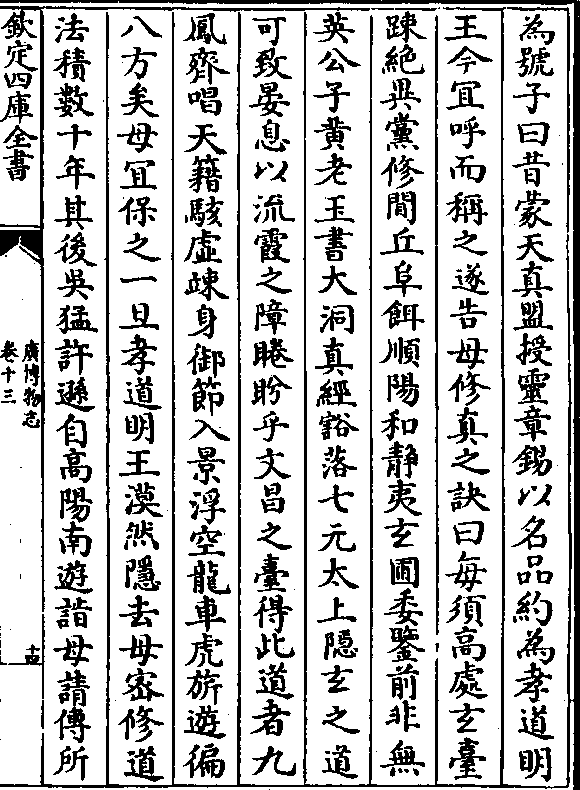 為號子曰昔蒙天真盟授靈章錫以名品約為孝道明
王今宜呼而稱之遂告母修真之訣曰每須高處玄臺
踈絕異黨修閒丘阜餌順陽和静夷玄圃委鑒前非無
英公子黄老玉書大洞真經豁落七元太上隠玄之道
可致晏息以流霞之障睠盻乎文昌之臺得此道者九
鳳齊唱天籟駭虛竦身御節入景浮空龍車虎旂遊徧
八方矣母宜保之一旦孝道明王漠然隱去母密修道
法積數十年其後吳猛許遜自高陽南遊詣母請傳所
欽定四庫全書
廣博物志
卷十三
十四